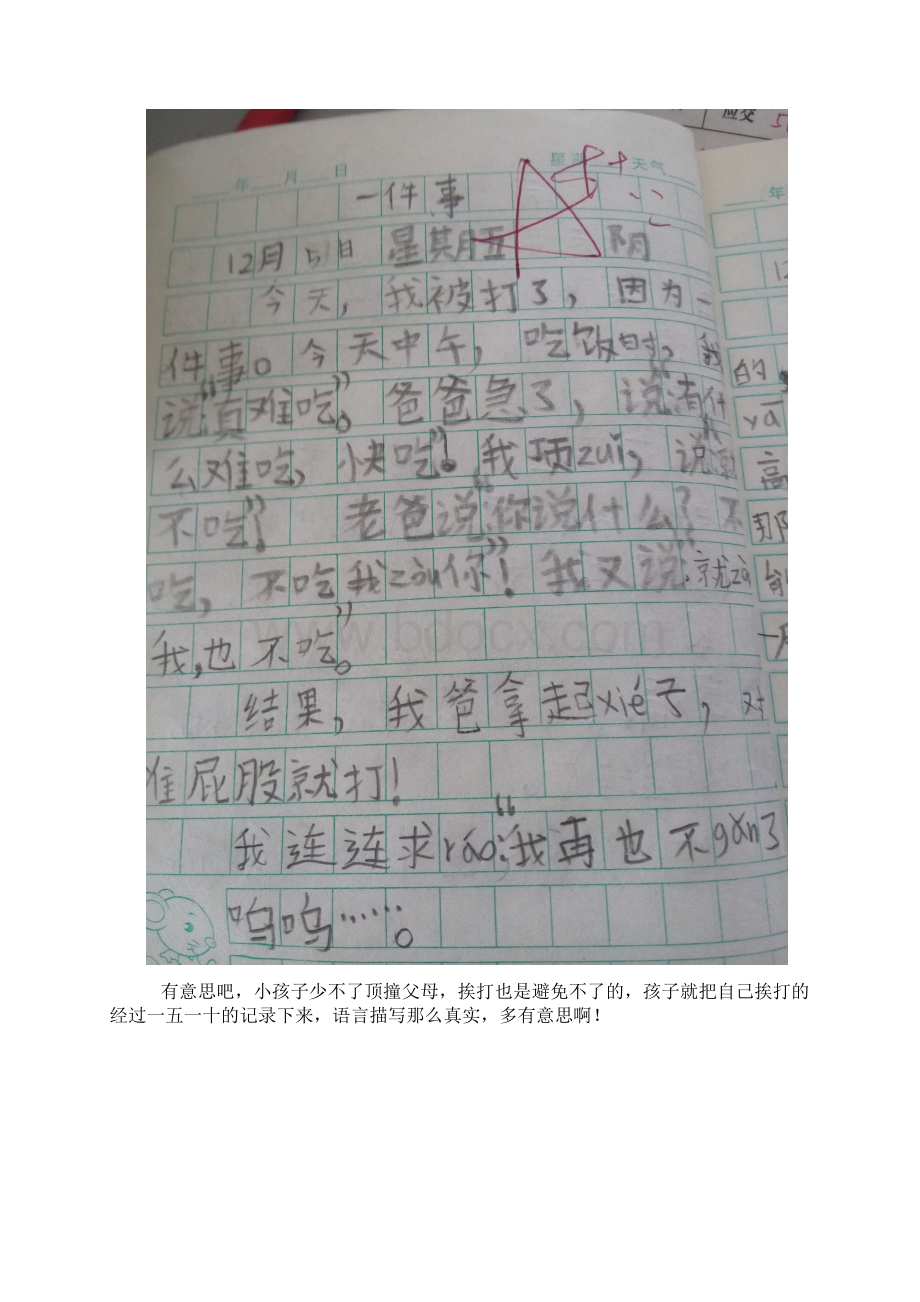 应交
年 月 日 星期 天气
年
一件事
12月5日 星期五 阴
今天，我被打了，因为一
件事。今天中午，吃饭时，我
说“真难吃”。爸爸急了，说“有什
么难吃，快吃”！我顶zuǐ，说“
不吃”！老爸说“你说什么？不
吃，不吃我zòu你”！我又说“就zòu
我，也不吃”。
www.bdocx.com
结果，我爸拿起xié子，对
准屁股就打！
我连连求ráo：“我再也不gǎn了
呜呜……。
的，
yā
高
那
一
有意思吧，小孩子少不了顶撞父母，挨打也是避免不了的，孩子就把自己挨打的
经过一五一十的记录下来，语言描写那么真实，多有意思啊！